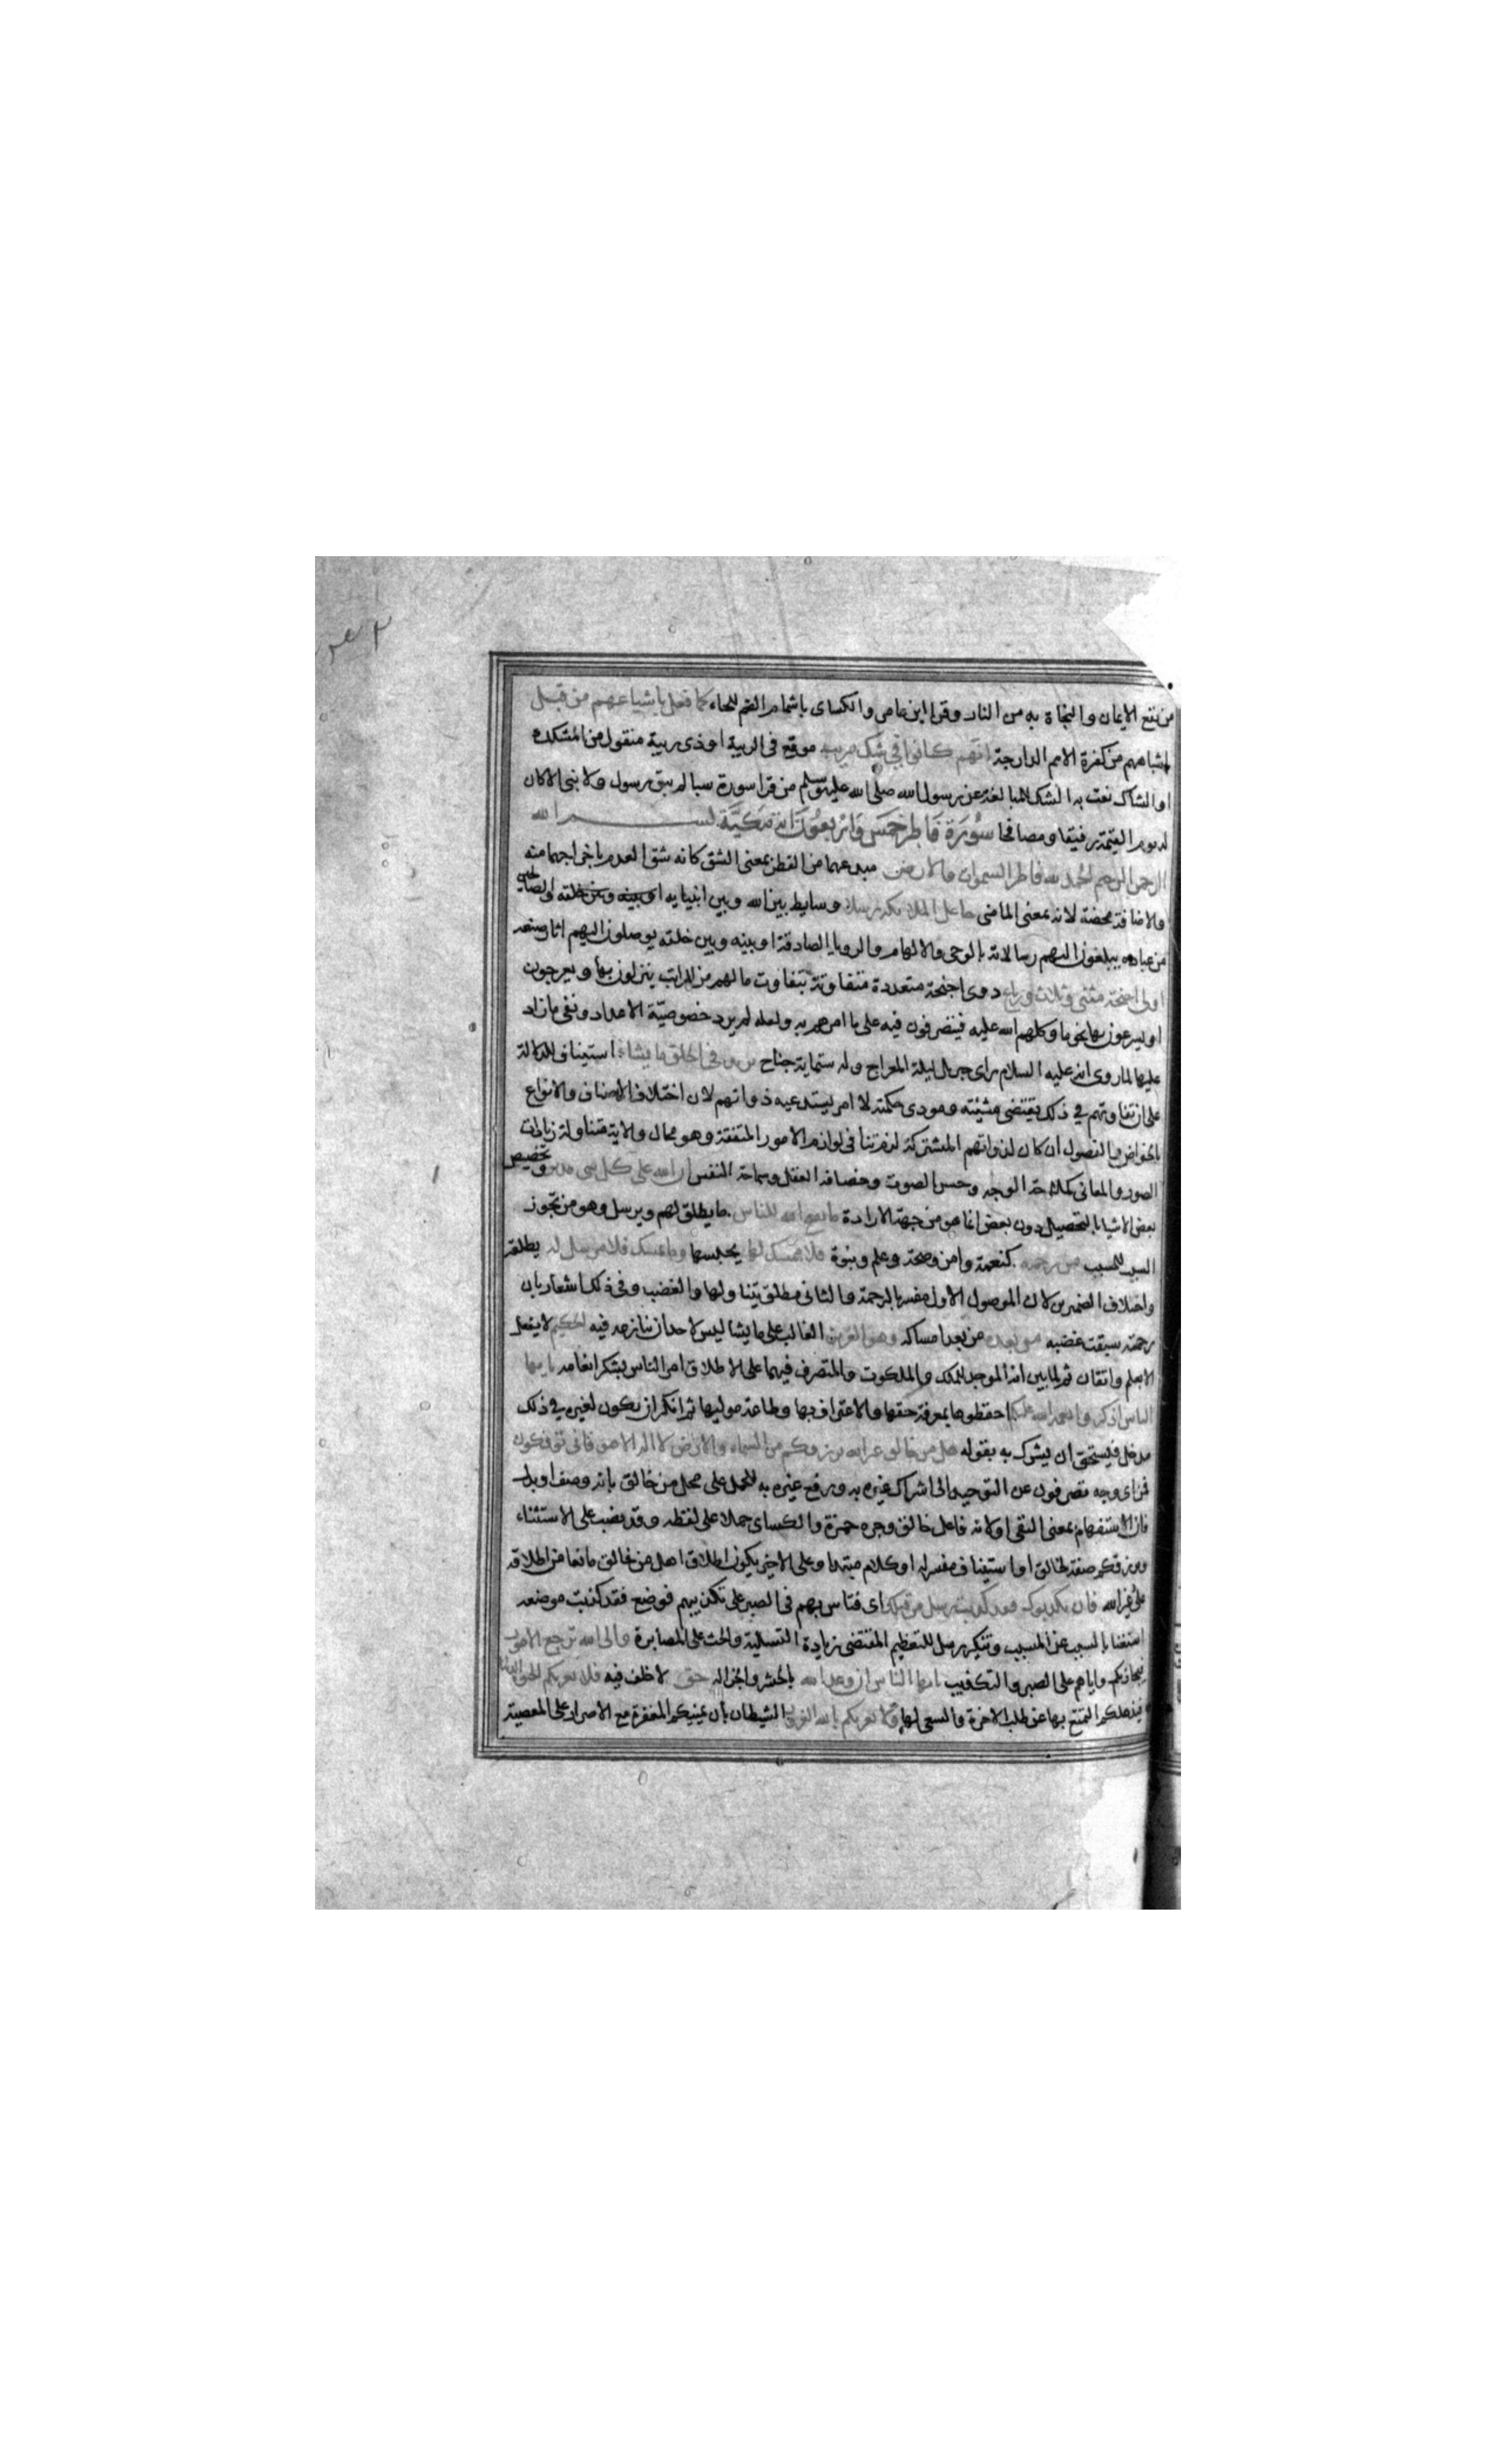 من نفع الايمان والنجاة به من النار وقرا ابن عامر والكساى باشمام الضم للحاء كما فعل باشياعهم من قبل
باشباههم من كفرة الامم الدارجة انهم كانوا في شك مريب موقع فى الريبة اوذى ريبة منقول من المشكك
او الشاك نعت به الشك للمبالغة عن رسول الله صلى الله عليه وسلم من قرا سورة سبا لم يبق رسول ولا نبى الا كان
له يوم القيمة رفيقا ومصافحا سورة فاطر خمس واربعون اية مكية بســـم الله
الرحمن الرحيم الحمد لله فاطر السموات والارض مبدعهما من الفطر بمعنى الشق كانه شق العدم باخراجهما منه
والاضافة محضة لانه بمعنى الماضى جاعل الملائكة رسلا وسايط بين الله وبين انبيايه او بينه وبين خلقه والصالحين
من عباده يبلغون اليهم رسالاته بالوحى والالهام والرويا الصادقة او بينه وبين خلقه يوصلون اليهم اثار صنعه
اولى اجنحة مثنى وثلاث ورباع ذوى اجنحة متعددة متفاوتة بتفاوت مالهم من المراتب ينزلون بها ويعرجون
او يسرعون بها نحو ما وكلهم الله عليه فيتصرفون فيه على ما امرهم به ولعله لم يرد خصوصية الاعداد ونفى ما زاد
عليها لما روى انه عليه السلام راى جبريل ليلة المعراج وله ستماية جناح يزيد فى الخلق ما يشاء استيناف للدلالة
على ان تفاوتهم في ذلك بمقتضى مشيئته ومودى حكمته لا امر يستدعيه ذواتهم لان اختلاف الاصناف والانواع
بالخواص والفصول ان كان لذواتهم المشتركة لزم تنافى لوازم الامور المتفقة وهو محال والاية متناولة زيادات
الصور والمعانى كملاحة الوجه وحسن الصوت وحصافة العقل وسماحة النفس ان الله على كل شى قدير وتخصيص
بعض الاشيا بالتحصيل دون بعض انما هو من جهة الارادة ما يفتح الله للناس ما يطلق لهم ويرسل وهو من تجوز
السبب للمسبب من رحمة كنعمة وامن وصحة وعلم ونبوة فلا ممسك لها يحبسها وما يمسك فلا مرسل له يطلقه
واختلاف الضميرين لان الموصول الاول مفسر بالرحمة والثانى مطلق يتناولها والغضب وفى ذلك اشعار بان
رحمته سبقت غضبه من بعده من بعد امساكه وهو العزيز الغالب على ما يشا ليس لاحد ان ينازعه فيه الحكيم لا يفعل
الا بعلم واتقان ثم لما بين انه الموجد للملك والملكوت والمتصرف فيهما على الاطلاق امر الناس بشكر انعامه يا ايها
الناس اذكروا نعمة الله عليكم احفظوها بمعرفة حقها والاعتراف بها وطاعة موليها ثم انكر ان يكون لغيره في ذلك
مدخل فيستحق ان يشرك به بقوله هل من خالق غير الله يرزقكم من السماء والارض لا اله الا هو فانى توفكون
فمن اى وجه تصرفون عن التوحيد الى اشراك غيره به ورفع غيره به للحمل على محل من خالق بانه وصف او بدل
فان الاستفهام بمعنى النفى او لانه فاعل خالق وجره حمزة والكساى حملا على لفظه وقد نصب على الاستثناء
ويرزقكم صفة لخالق او استيناف مفسر له او كلام مبتدا وعلى الاخير يكون اطلاق هل من خالق مانعا من اطلاقه
على غير الله فان يكذبوك فقد كذبت رسل من قبلك اى فتاس بهم فى الصبر على تكذيبهم فوضع فقد كذبت موضعه
استغنا بالسبب عن المسبب وتنكير رسل للتعظيم المقتضى زيادة التسلية والحث على المصابرة والى الله ترجع الامور
فيجازيكم واياهم على الصبر والتكذيب يا ايها الناس ان وعد الله بالحشر والجزا له حق لا خلف فيه فلا تغرنكم الحيوة الدنيا
فيذهلكم التمتع بها عن طلب الاخرة والسعى لها ولا يغرنكم بالله الغرور الشيطان بان يمنيكم المغفرة مع الاصرار على المعصية